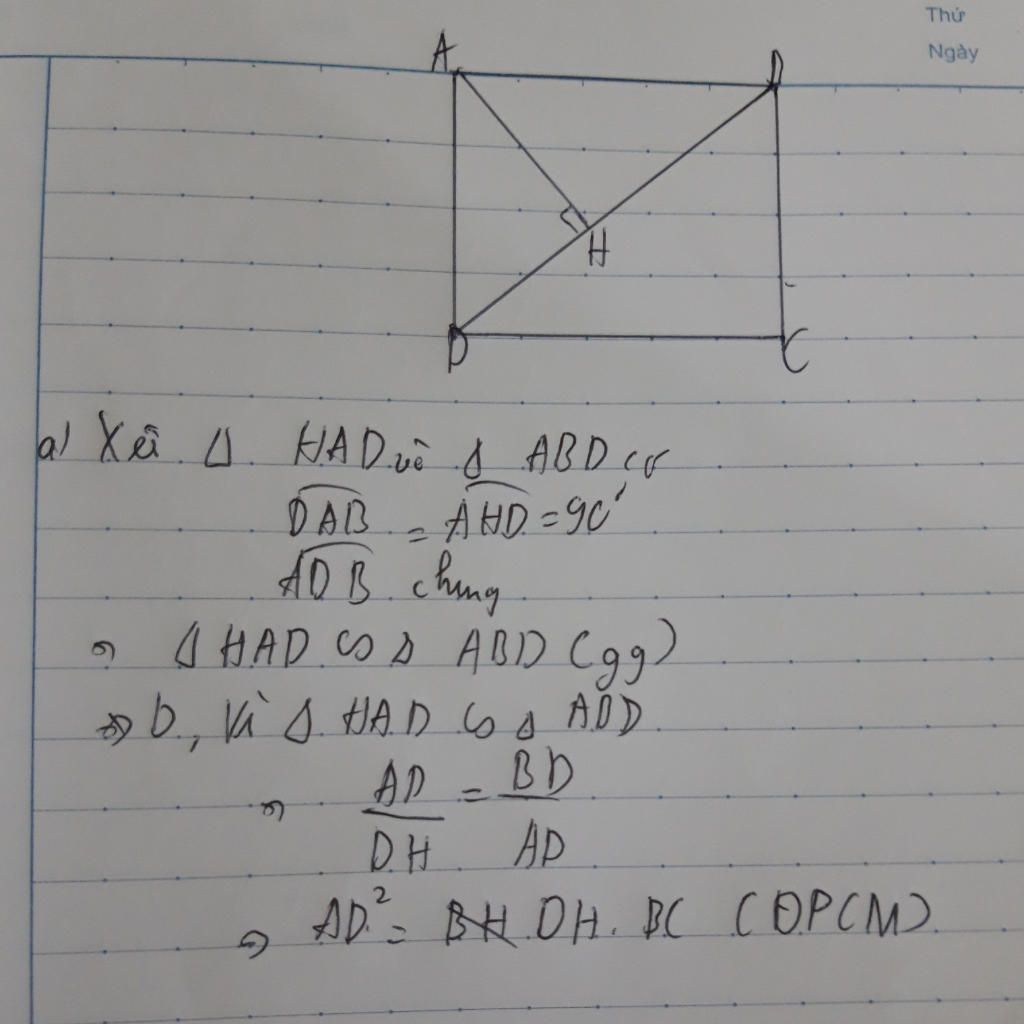 Thứ
Ngày
A
D
H
D
C
a) Xét Δ HAD và Δ ABD có
DAB = AHD = 90°
ADB chung
⇒ Δ HAD ∽ Δ ABD (gg)
⇒ b, Vì Δ HAD ∽ Δ ABD
⇒ AD/DH = BD/AD
⇒ AD² = BH DH. BC (ĐPCM)